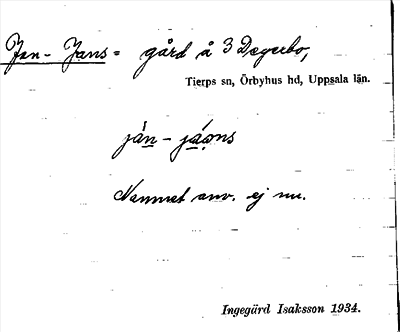 Jan-Jans = gård å 3 Degerbo,
Tierps sn, Örbyhus hd, Uppsala län.
ján - jáọns
Namnet anv. ej nu.
Ingegärd Isaksson 1934.